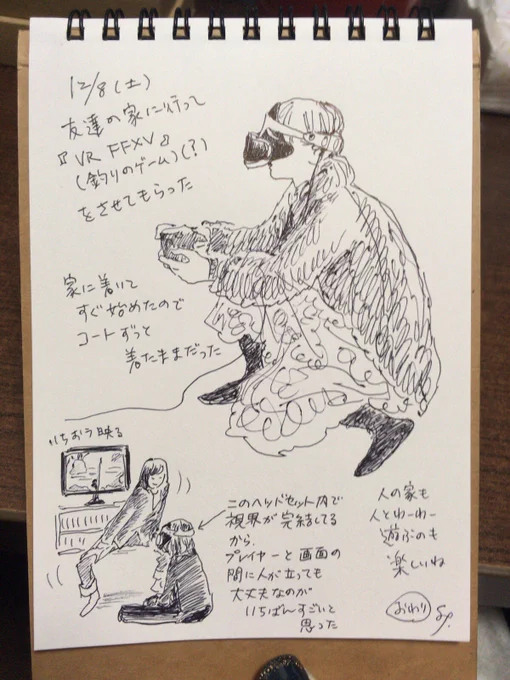 12/8(土)
友達の家に行って
『VR FFXV』
(釣りのゲーム)(?)
をさせてもらった
家に着いて
すぐ始めたので
コートずっと
着たままだった
いちおう映る
このヘッドセット内で
視界が完結してる
から、
プレイヤーと画面の
間に人が立っても
大丈夫なのが
いちばんすごいと
思った
人の家も
人とわーわー
遊ぶのも
楽しいね
おわり